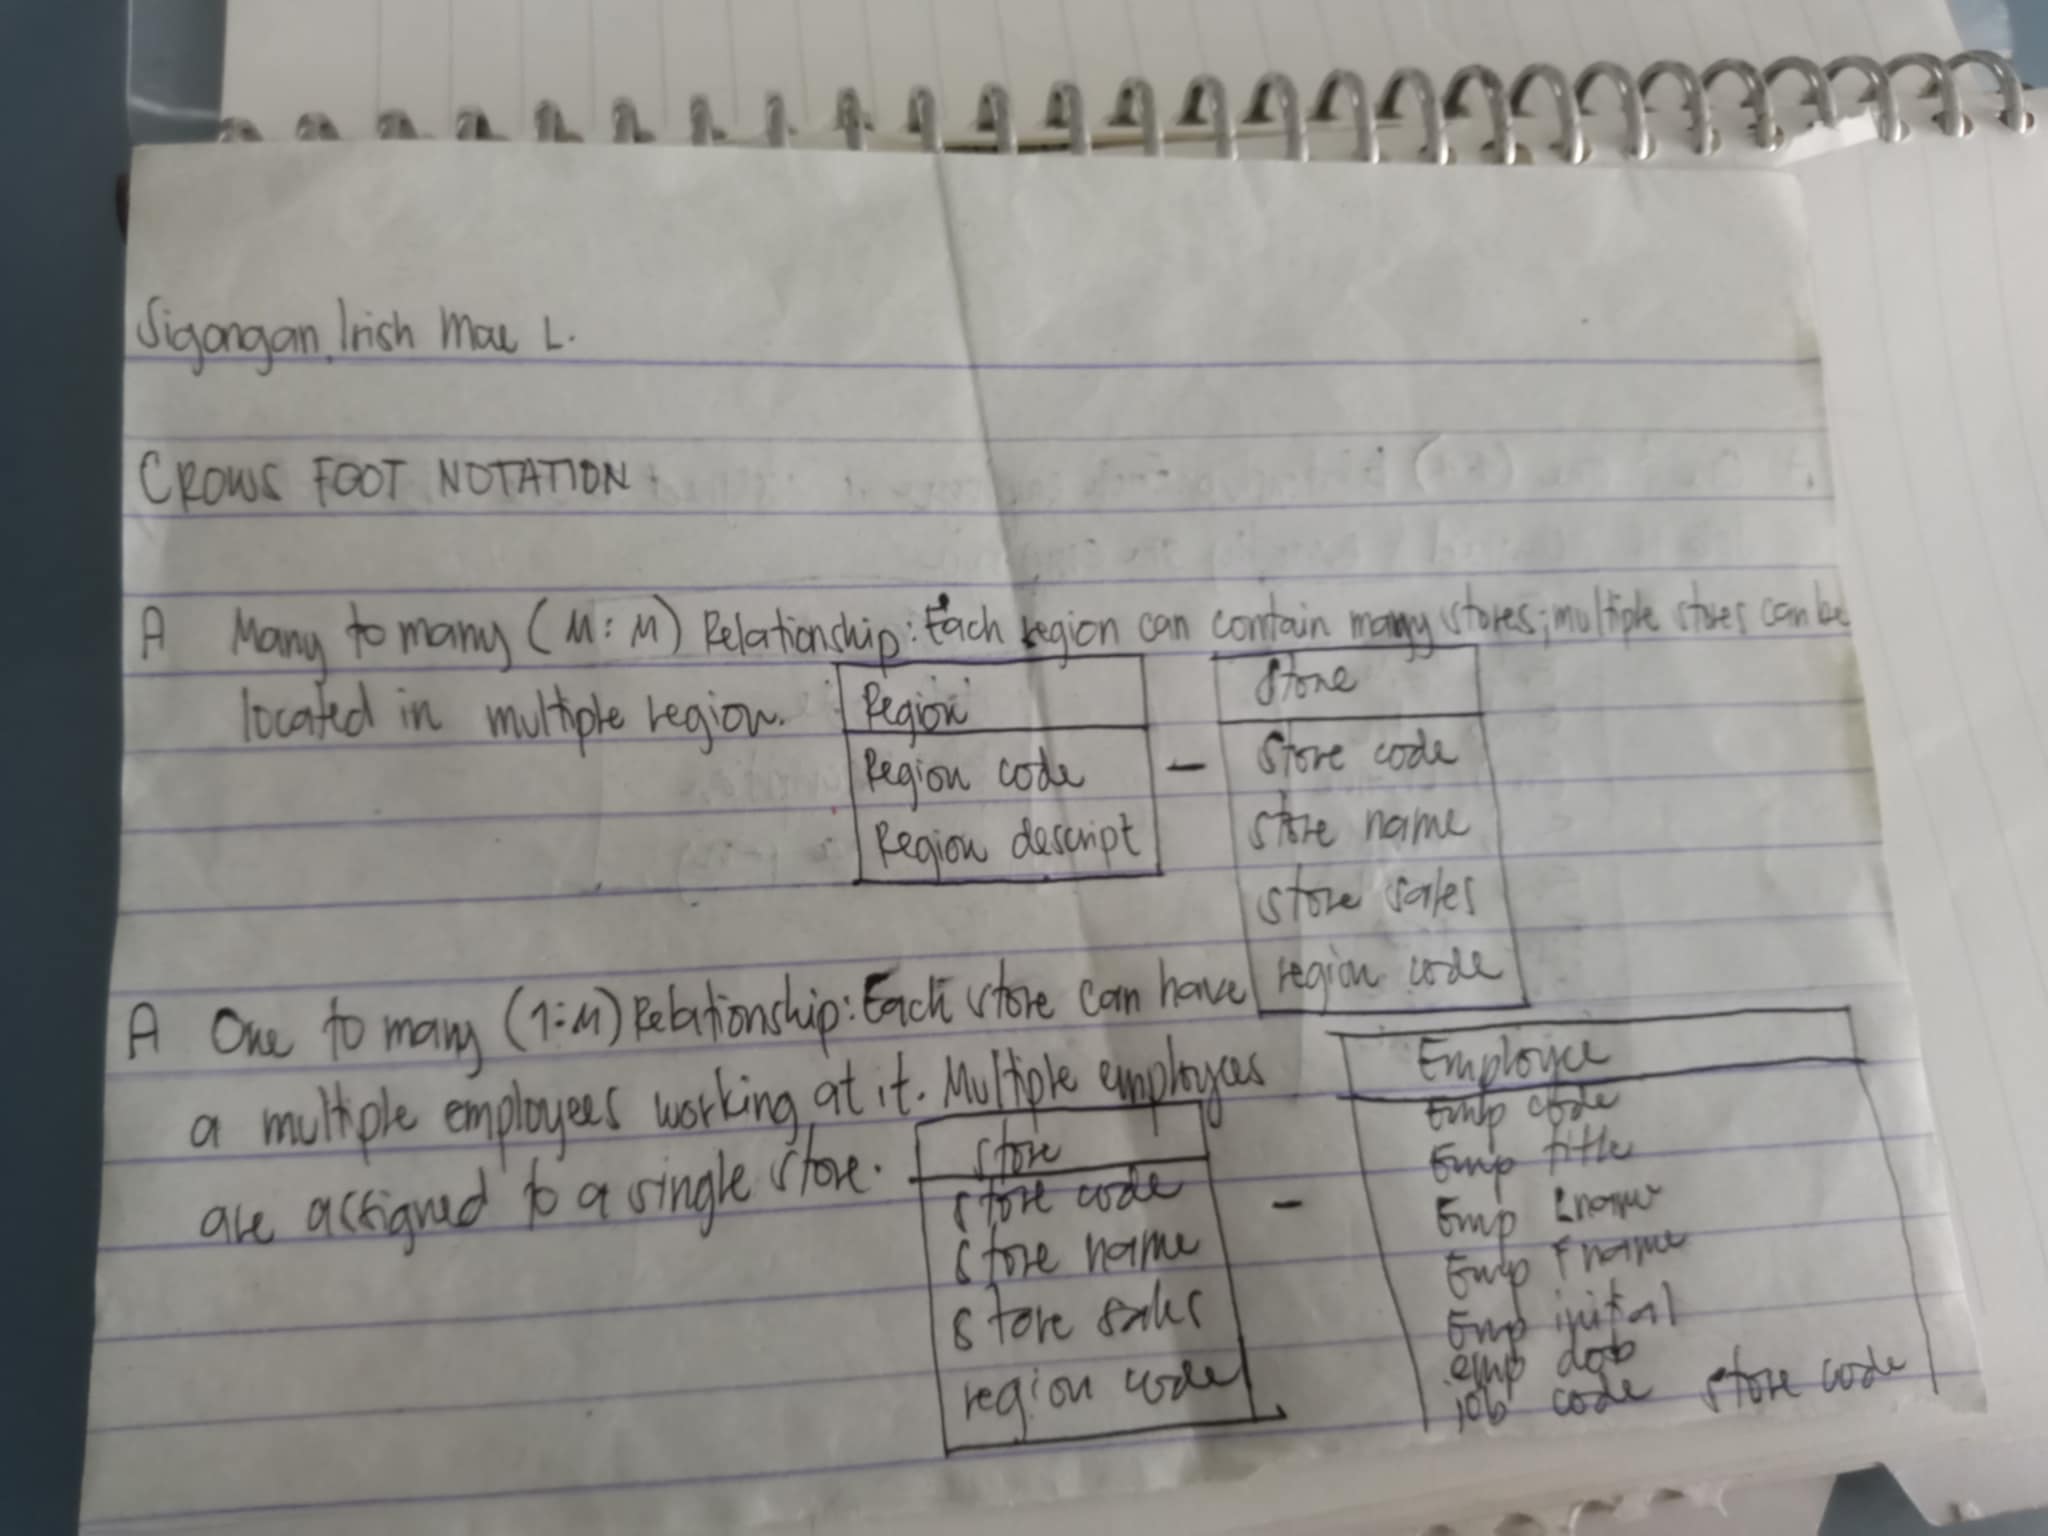 Sigangan, Irish Mae L.
CROWS FOOT NOTATION
A Many to many (M:M) Relationship: Each region can contain many stores; multiple stores can be
located in multiple region.
Region
Region code
Region descript
—
Store
Store code
store name
store sales
region code
A One to many (1:M) Relationship: Each store can have
a multiple employees working at it. Multiple employees
are assigned to a single store.
store
store code
store name
store sales
region code
–
Employee
Emp code
Emp title
Emp Lname
Emp Fname
Emp initial
emp dob
job code store code